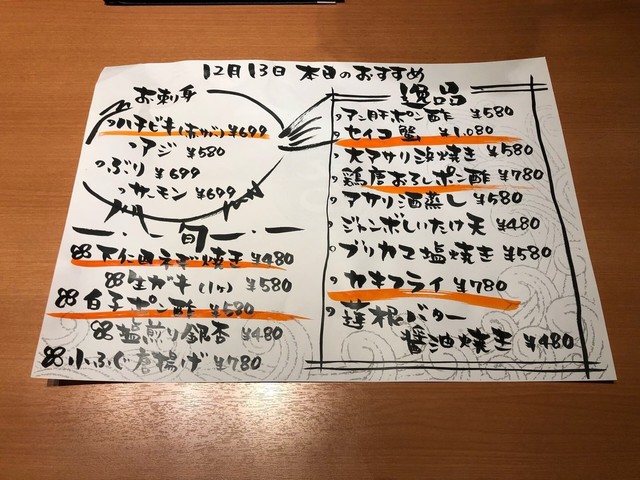 12月13日 本日のおすすめ
お刺身
ハチビキ(赤サバ) ¥699
アジ ¥580
ぶり ¥699
サーモン ¥699
旬
下仁田ネギ焼き ¥480
生ガキ(1ヶ) ¥580
白子ポン酢 ¥580
塩煎り銀杏 ¥480
小ふぐ唐揚げ ¥780
逸品
アン肝ポン酢 ¥580
セイコ蟹 ¥1,080
大アサリ浜焼き ¥580
鶏唐おろしポン酢 ¥780
アサリ酒蒸し ¥580
ジャンボしいたけ天 ¥480
ブリカマ塩焼き ¥580
カキフライ ¥780
蓮根バター
醤油焼き ¥480